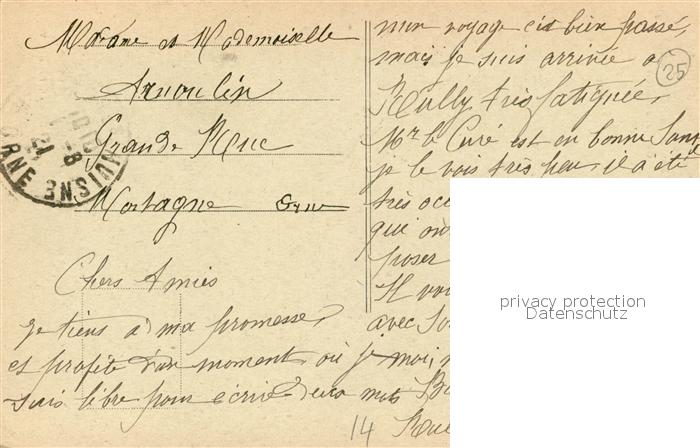 Madame et Mademoiselle
Arnoulin
Grande Rue
Mortagne Orne
Chers Amies
je tiens à ma promesse,
et profite d'un moment où je
suis libre pour écrire deux mots
mon voyage c'est bien passé,
mais je suis arrivée à
Reuilly très fatiguée,
Mr le Curé est en bonne Santé
je le vois très peu, il a été
très occ
que on
poser
Il
avec
moi,
25
14
ORNE
privacy protection
Datenschutz